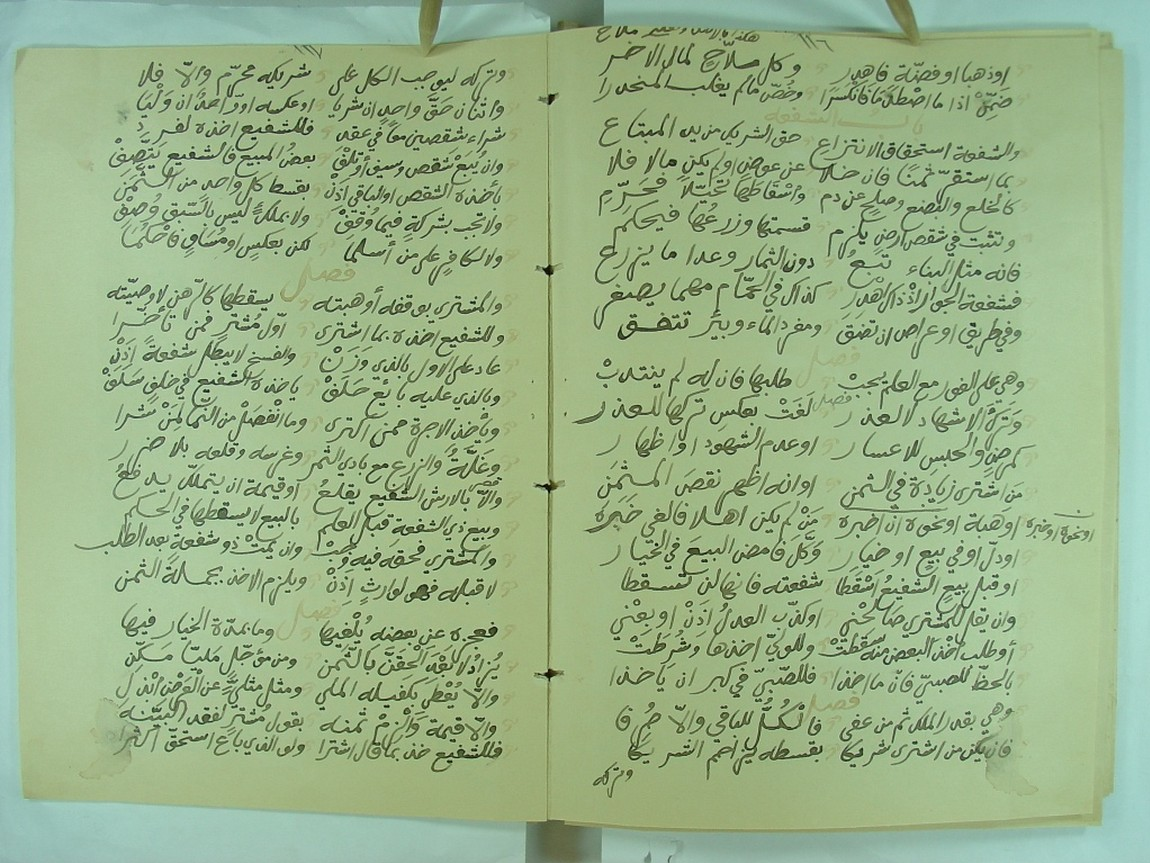 ١١٦
اوذهبا اوفضة فاهدر وكل ملاح لمال الاخر
ضمن اذا ما اصطدما فانكسرا وخص مالم يغلب المنحدرا
باب الشفعة
والشفعة استحقاق الانتزاع حق الشريك من يد المبتاع
بما استقر ثمنا فان خلا عن عوض اولم يكن مالا فلا
كالخلع والبضع وصلح عن دم واسقاطها تحيلا فحرم
وتثبت في شقص ارض يلزم قسمتها وزرعها فيحكم
فانه مثل البناء تبع دون الثمار وعدا ما يزرع
فشفعة الجوار اذ ذاك اهدر كذاك في الحمام مهما يصغر
وفي طريق اوعراص ان تضق ومفرد الماء وبئر تتفق
فصل
وهي على الفور مع العلم يجب طلبها فان له لم ينتدب
وترك الاشهاد لا لعذر لغت بعكس تركها للعذر
كمرض والحبس للاعسار اوعدم الشهود او اظهار
من اشترى زيادة في الثمن او انه اظهر نقص المثمن
اوهبة اونحوه ان اخبره من لم يكن اهلا فالغي خبره
اودل اوفي بيع او خيار وكل فامض البيع في الخيار
اوقبل بيع الشفيع اسقطا شفعته فانها لن تسقطا
وان يقل للمشتري صالحني اوكذب العدل اذن اوبعني
أوطلب أخذ البعض منه سقطت وللولي اخذها وشرطت
بالحظ للصبي فان ما اخذا فللصبي في كبر ان ياخذا
فصل
وهي بقدر الملك ثم من عفى فالكل للباقي والا حرفا
فان يكن من اشترى شريكا بقسطه يزاحم الشريكا
وتركه
وتركه ليوجب الكل على شريكه محرم والا فلا
واثنان حق واحد ان شريا اوعكسه اوواحد ان وليا
شراء شقصين معا في عقد فللشفيع اخذه لفرد
وان يبع شقص وسيف أوتلف بعض المبيع فالشفيع يتصف
بأخذه الشقص اوالباقي اذن بقسط كل واحد من الثمن
ولا تجب بشركة فيما وقف ولا بملك ليس بالسبق وصف
ولا لكافر على من أسلما لكن بعكس اومساو فاحكما
فصل
والمشتري يوقفه أوهبته يسقطها كالرهن لا وصيته
وللشفيع اخذه بما اشترى اول مشتر فمن تأخرا
عاد على الاول بالذي وزن والفسخ لا يبطل شفعة اذن
وبالذي عليه بائع حلف ياخذه الشفيع في خلف سلف
ويأخذ الاجرة ممن اكترى وما انفصل من النما لمن شرا
وغلة والزرع مع بادي الثمر وغرسه وقلعه بلا ضرر
والا بالارش الشفيع يقلع أوقيمة ان يتملك يدفع
وبيع ذي الشفعة قبل العلم بالبيع لا يسقطها في الحكم
والمشتري محقه فيه وجبت وان يمت ذوشفعة بعد الطلب
لا قبله فهو لوارث اذن ويلزم الاخذ بجملة الثمن
فصل
فعجزه عن بعضه يلغيها وما بمدة الخيار فيها
يزاد لا بعد الحقن بالثمن ومن مؤجل مليا مكن
والا يعطى بكفيله الملي ومثل مثلية عن العرض ابذل
والا قيمة والزم ثمنه بقول مشتر لفقد البينه
فللشفيع خذ بما قال اشترا ولو الذي باع استحق اكثرا